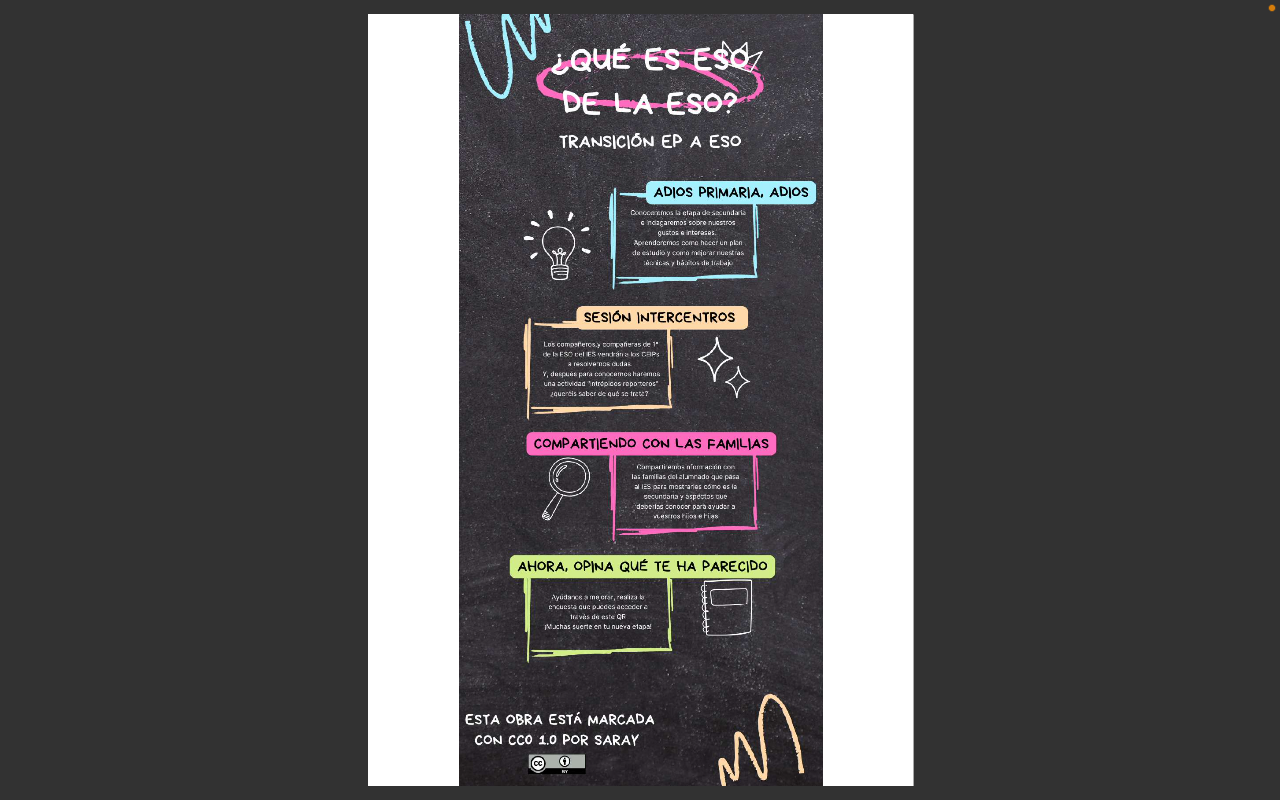 ¿QUÉ ES ESO
DE LA ESO?
TRANSICIÓN EP A ESO
ADIOS PRIMARIA, ADIOS
Conoceremos la etapa de secundaria
e indagaremos sobre nuestros
gustos e intereses.
Aprenderemos como hacer un plan
de estudio y como mejorar nuestras
técnicas y hábitos de trabajo
SESIÓN INTERCENTROS
Los compañeros y compañeras de 1º
de la ESO del IES vendrán a los CEIPs
a resolvernos dudas.
Y, después para conocernos haremos
una actividad "intrépidos reporteros"
¿queréis saber de qué se trata?
COMPARTIENDO CON LAS FAMILIAS
las familias del alumnado que pasa
al IES para mostrarles cómo es la
secundaria y aspectos que
deberías conocer para ayudar a
vuestros hijos e hijas
AHORA, OPINA QUÉ TE HA PARECIDO
Ayúdanos a mejorar, realiza la
encuesta que puedes acceder a
través de este QR
¡Muchas suerte en tu nueva etapa!
ESTA OBRA ESTÁ MARCADA
CON CC0 1.0 POR SARAY
CC
BY